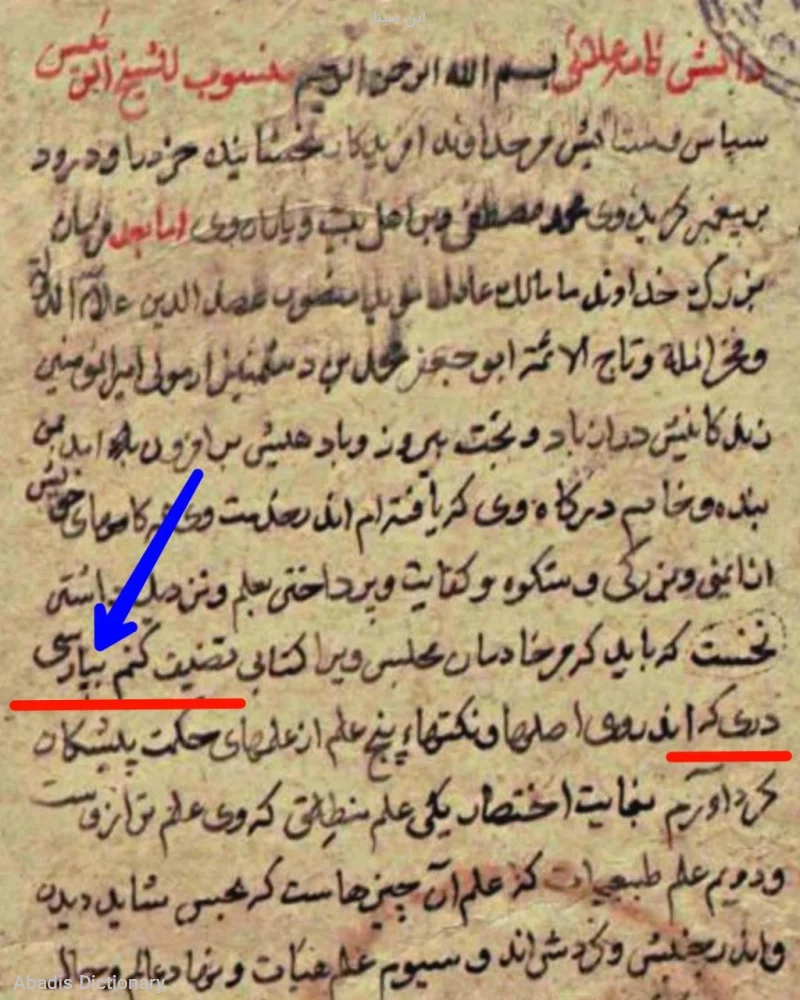 ابن سینا
دانش نامه علائی بسم الله الرحمن الرحیم منسوب للشیخ الرئیس
سپاس و ستایش مر خداوند افریدکار بخشاینده خرد را و درود
بر پیغمبر کزیده وی محمد مصطفی و بر اهل بیت و یاران وی اما بعد فرمان
بزرک خداوند ما مالک عادل موید منصور عضد الدین علاء الدولة
و فخر الملة و تاج الائمة ابو جعفر محمد بن دشمنیزار مولی امیر المومنین
زندکانیش دراز باد و بخت پیروز و پادهشیش بر افزون باد امد بمن
بنده و خادم درکاه وی که یافته ام اندر خدمت وی همه کامهای خویش
از ایمنی و بزرکی و شکوه و کفایت و پرداختن بعلم و نزدیک داشتن
نخست که باید که مر خادمان مجلس ویرا کتابی تصنیف کنم بپارسی
دری که اندر وی اصلها و نکتهاء پنج علم از علمهای حکمت پیشکان
کرد اورم بغایت اختصار یکی علم منطق که وی علم ترازوست
و دویم علم طبیعیات که علم آن چیزهاست که بحس شاید دیدن
و اندر جنبش و کردش اند و سیوم علم هیات و نهاد عالم و حال
Abadis Dictionary